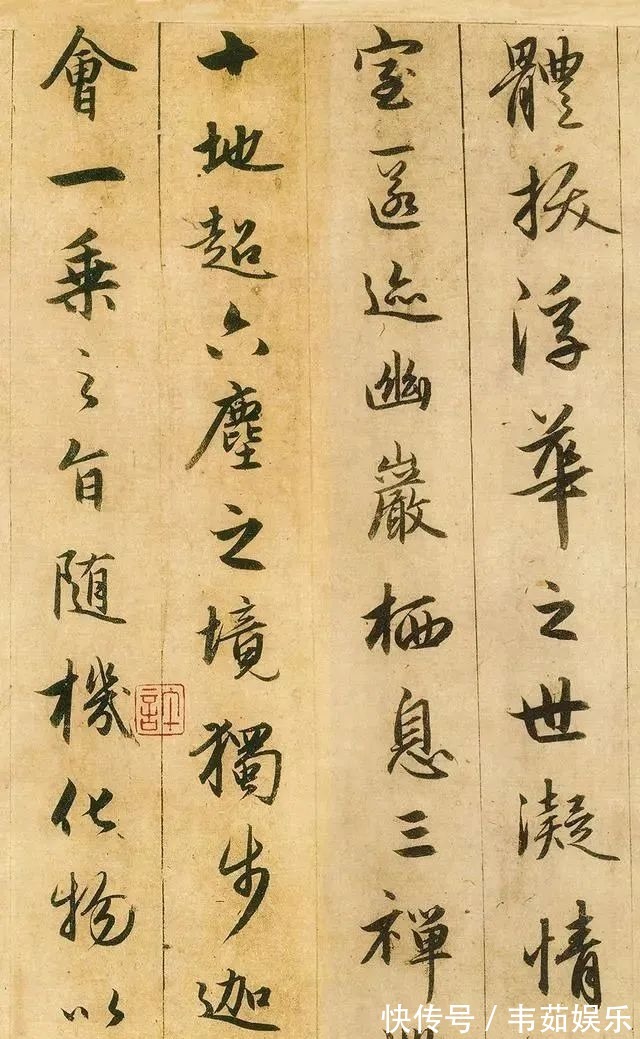 體拔浮華之世凝情
室匿迹幽巖栖息三禪
十地超六塵之境獨步迦
會一乘之旨随機化物以
許
快传号 / 韦茹娱乐